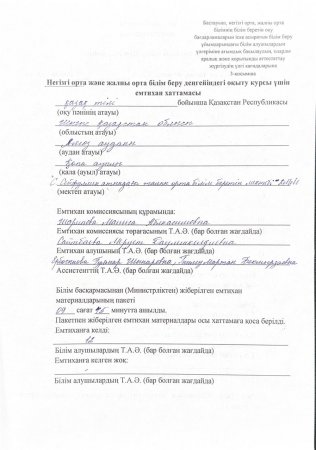 Бастауыш, негізгі орта, жалпы орта
білімнің білім беретін оқу
бағдарламаларын іске асыратын білім беру
ұйымдарындағы білім алушылардың
үлгеріміне ағымдағы бақылауды, оларды
аралық және қорытынды аттестаттау
жүргізудің үлгі қағидаларына
3-қосымша
Негізгі орта және жалпы орта білім беру деңгейіндегі оқыту курсы үшін
емтихан хаттамасы
қазақ тілі бойынша Қазақстан Республикасы
(оқу пәнінің атауы)
қазақстан облысы
(облыстың атауы)
ауданы
(аудан атауы)
ауылы
(қала (ауыл) атауы)
жалпы орта білім беретін мектебі
(мектеп атауы)
Емтихан комиссиясының құрамында:
Шарипова
Емтихан комиссиясы төрағасының Т.А.Ә. (бар болған жағдайда)
Емтихан алушының Т.А.Ә. (бар болған жағдайда)
Ассистенттің Т.А.Ә. (бар болған жағдайда)
Білім басқармасынан (Министрліктен) жіберілген емтихан
материалдарының пакеті
09 сағат 45 минутта ашылды.
Пакетпен жіберілген емтихан материалдары осы хаттамаға қоса берілді.
Емтиханға келді:
12
Білім алушылардың Т.А.Ә. (бар болған жағдайда)
Емтиханға келген жоқ:
Білім алушылардың Т.А.Ә. (бар болған жағдайда)